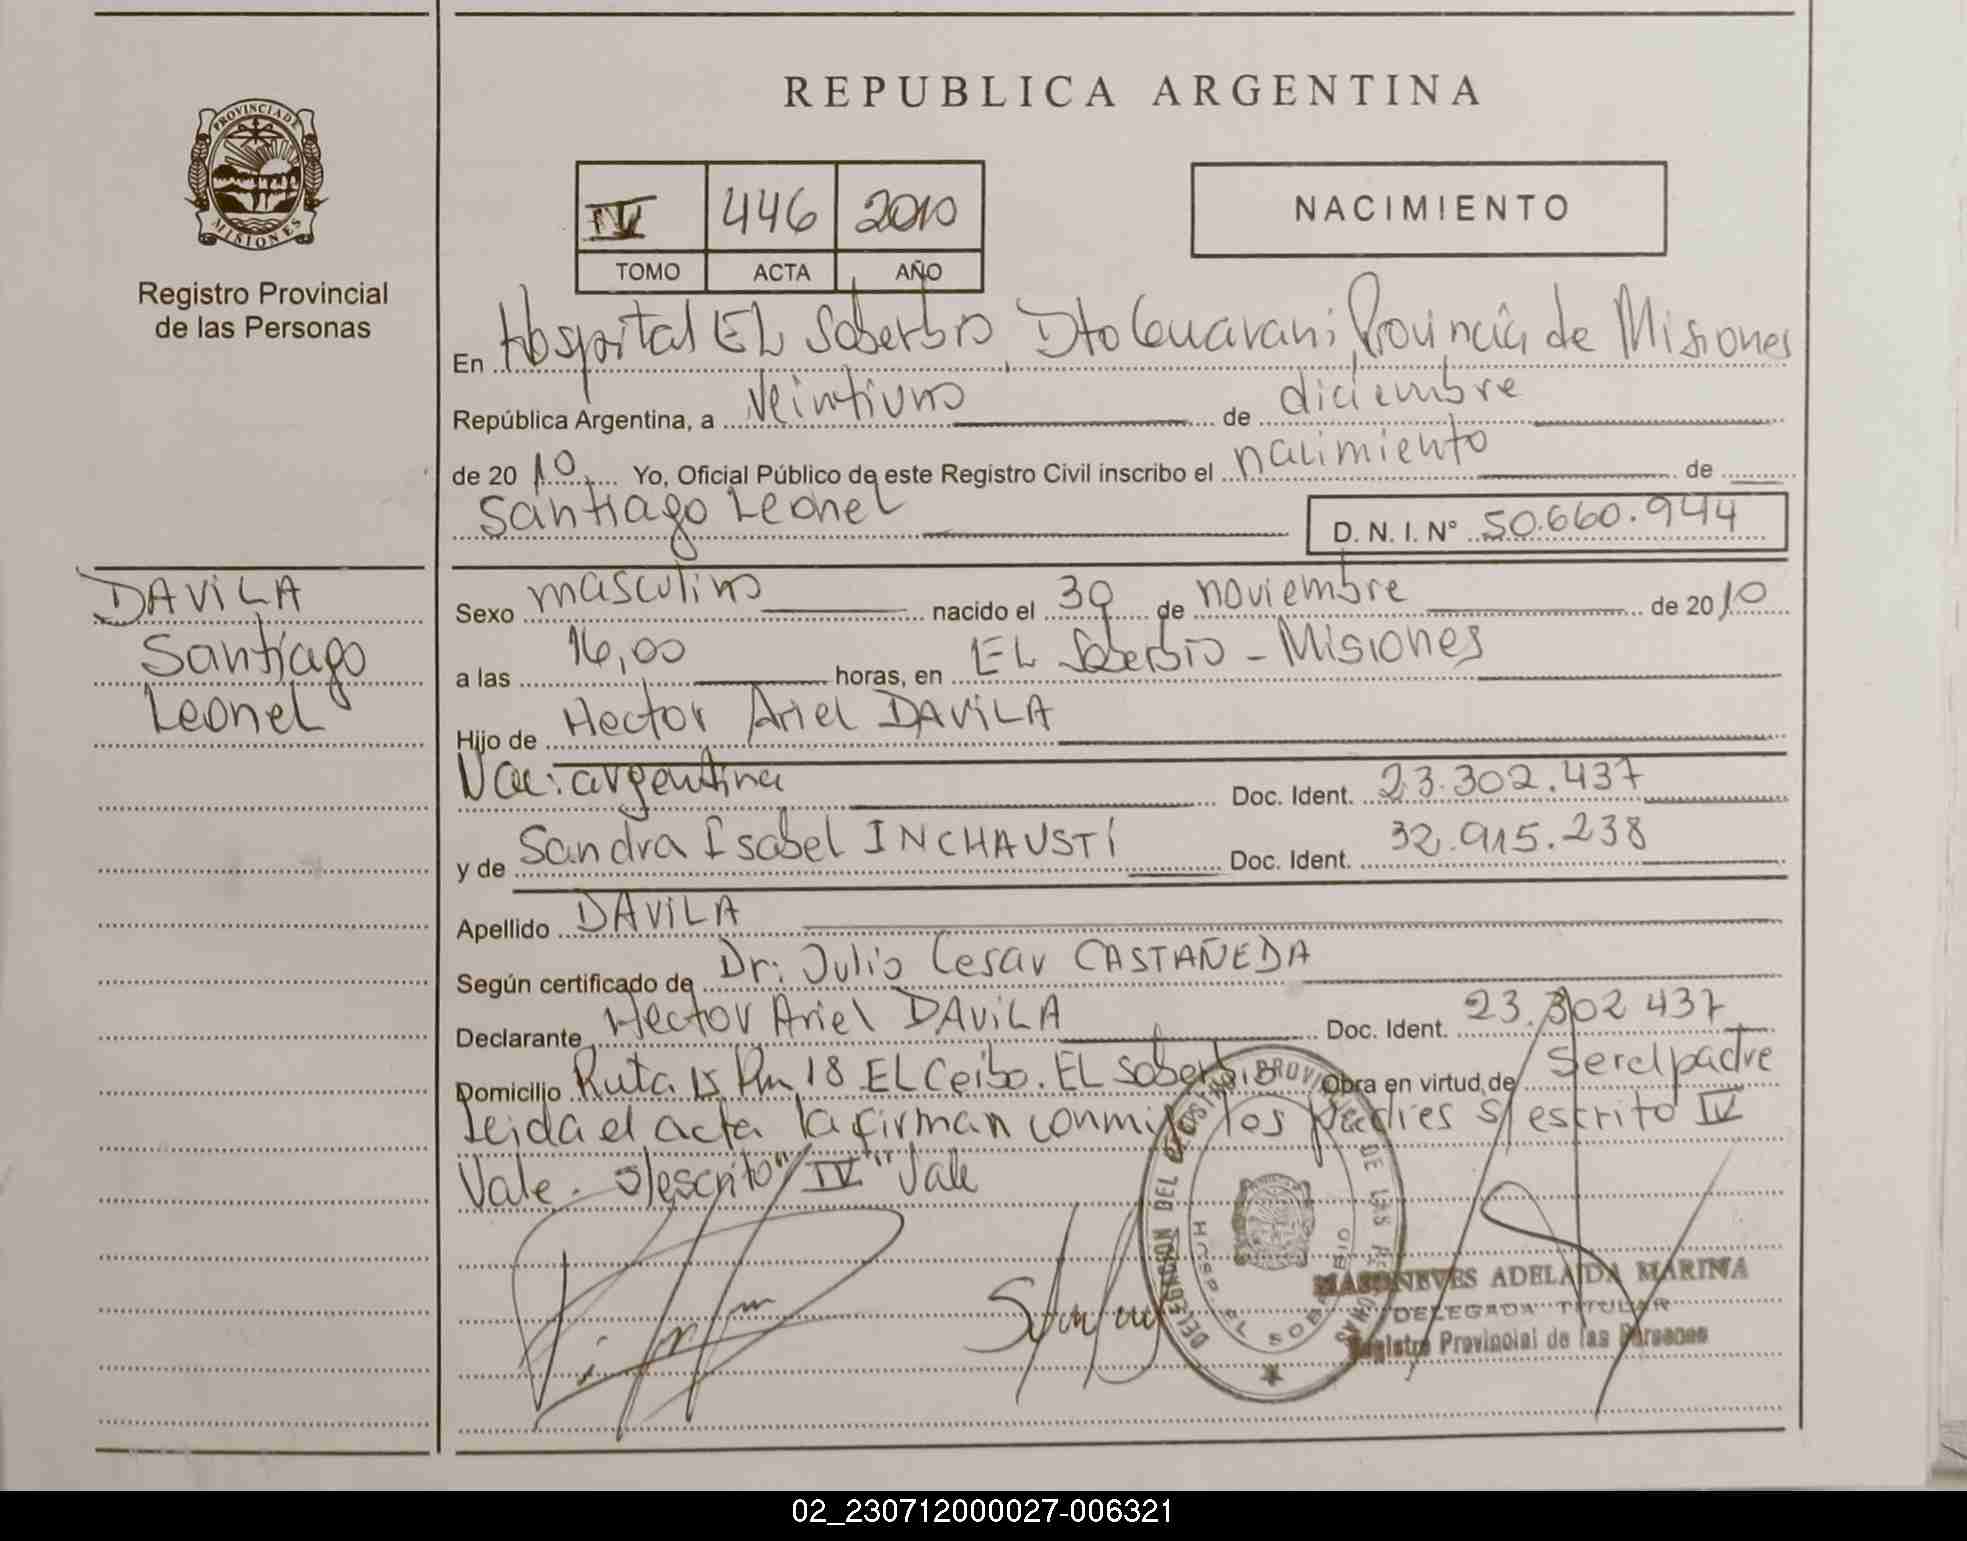 REPUBLICA ARGENTINA
PROVINCIA DE
MISIONES
Registro Provincial
de las Personas
IV 446 2010
TOMO ACTA AÑO
NACIMIENTO
En Hospital EL Soberbio, Dto Guarani, Provincia de Misiones
República Argentina, a veintiuno de diciembre
de 2010 Yo, Oficial Público de este Registro Civil inscribo el nacimiento de
Santiago Leonel D. N. I. N° 50.660.944
DAVILA
Santiago
Leonel
Sexo masculino nacido el 30 de noviembre de 2010
a las 16,00 horas, en EL Soberbio - Misiones
Hijo de Hector Ariel DAVILA
Nac: argentina Doc. Ident. 23.302.437
y de Sandra Isabel INCHAUSTÍ Doc. Ident. 32.915.238
Apellido DAVILA
Según certificado de Dr: Julio Cesar CASTAÑEDA
Declarante Hector Ariel DAVILA Doc. Ident. 23.302 437
Domicilio Ruta 15 Km 18 EL Ceibo. EL Soberbio Obra en virtud de ser el padre
Leida el acta la firman conmigo los padres S/escrito IV
Vale. S/escrito "IV" Vale
DELEGACION DEL REGISTRO PROVINCIAL DE LAS PERSONAS
HOSP. EL SOBERBIO
MASONEVES ADELAIDA MARINA
DELEGADA TITULAR
Registro Provincial de las Personas
02_230712000027-006321